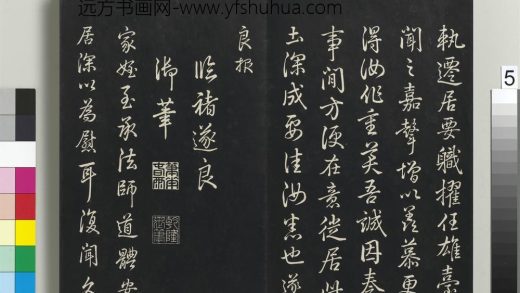 远方书画网-www.yfshuhua.com
執遷居要職擢任雄臺
聞之嘉聲增以羨慕更
得汝作重美吾誠因奏
事間方便在意從居此
土深成要佳汝悉也遂
良報
臨褚遂良
御筆
家姪至承法師道體安
居深以為慰耳復聞久
5